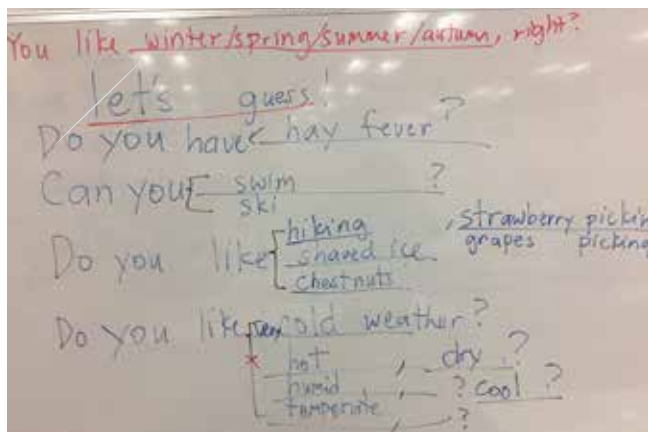 You like winter/spring/summer/autumn, right?
let's guess!
Do you have hay fever?
Can you swim ?
ski
Do you like hiking , strawberry pickin
shaved ice grapes picking
chestnuts
Do you like cold weather?
hot , dry ?
humid , ? cool ?
temperate , ?